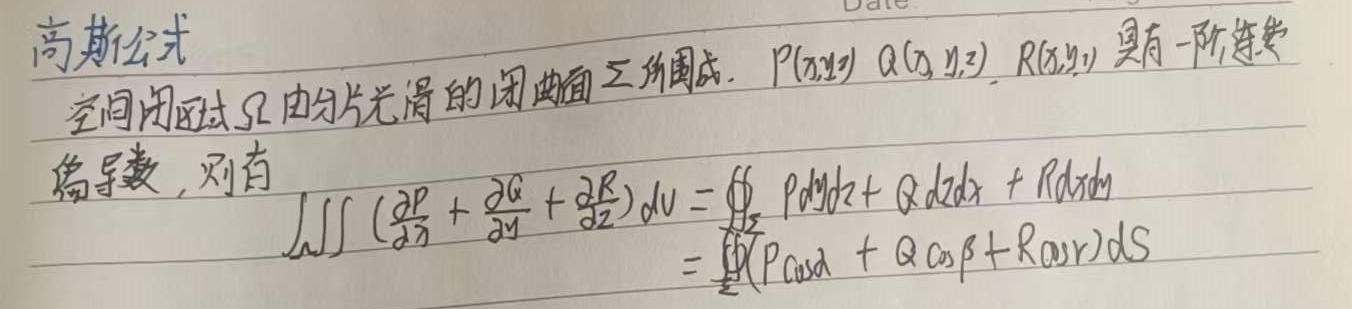 Date
高斯公式
空间闭区域Ω由分片光滑的闭曲面Σ所围成. P(x,y,z) Q(x,y,z) R(x,y,z) 具有一阶连续
偏导数,则有
∭_Ω (∂P/∂x + ∂Q/∂y + ∂R/∂z) dv = ∯_Σ Pdydz + Qdzdx + Rdxdy
= ∯_Σ (Pcosα + Qcosβ + Rcosγ) dS